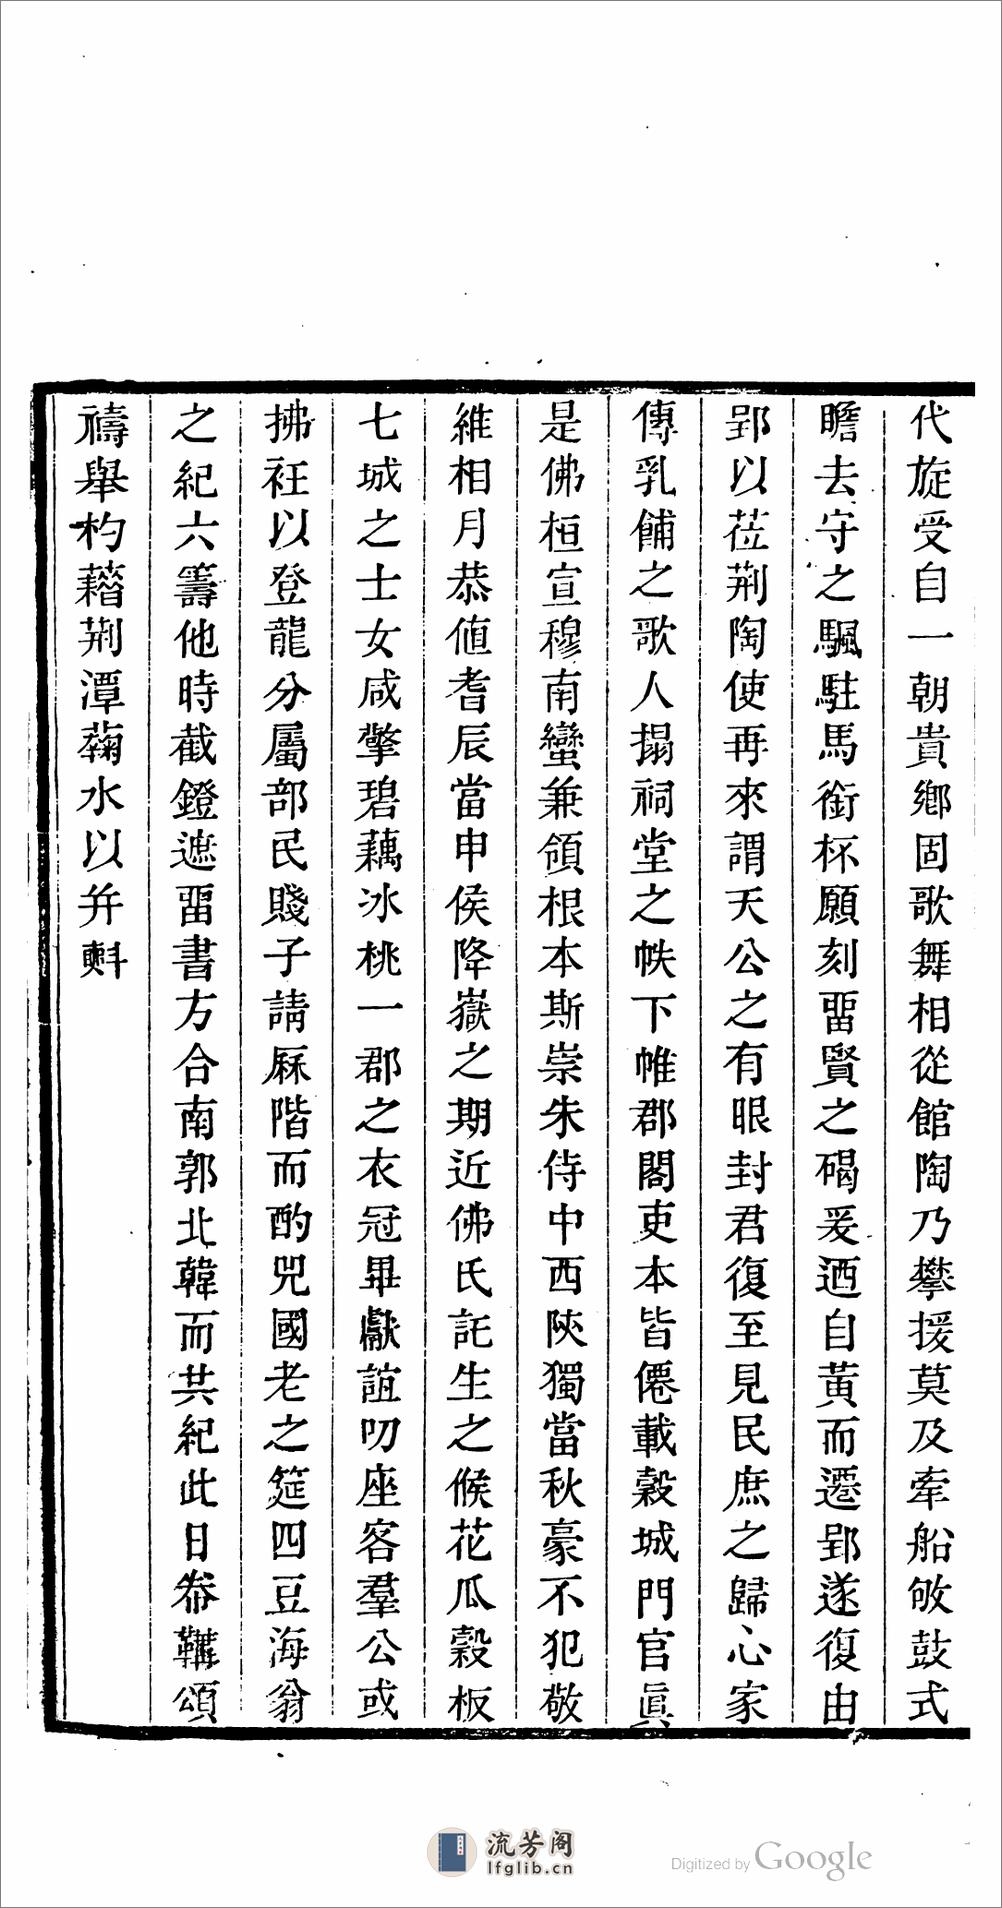 代旋受自一朝貴鄉固歌舞相從館陶乃攀援莫及牽船攸鼓式
瞻去守之颿駐馬銜杯願刻畱賢之碣爰迺自黃而遷郢遂復由
郢以莅荆陶使再來謂天公之有眼封君復至見民庶之歸心家
傳乳餔之歌人搨祠堂之帙下帷郡閣吏本皆僊載穀城門官眞
是佛桓宣穆南蠻兼領根本斯崇朱侍中西陝獨當秋豪不犯敬
維相月恭值耆辰當申侯降嶽之期近佛氏託生之候花瓜穀板
七城之士女咸擎碧藕冰桃一郡之衣冠畢獻誼叨座客羣公或
拂衽以登龍分屬部民賤子請厤階而酌兕國老之筵四豆海翁
之紀六籌他時截鐙遮畱書方合南郭北韓而共紀此日帣鞲頌
禱舉杓藉荆潭蘜水以幷㪺
流芳阁
lfglib.cn
Digitized by Google